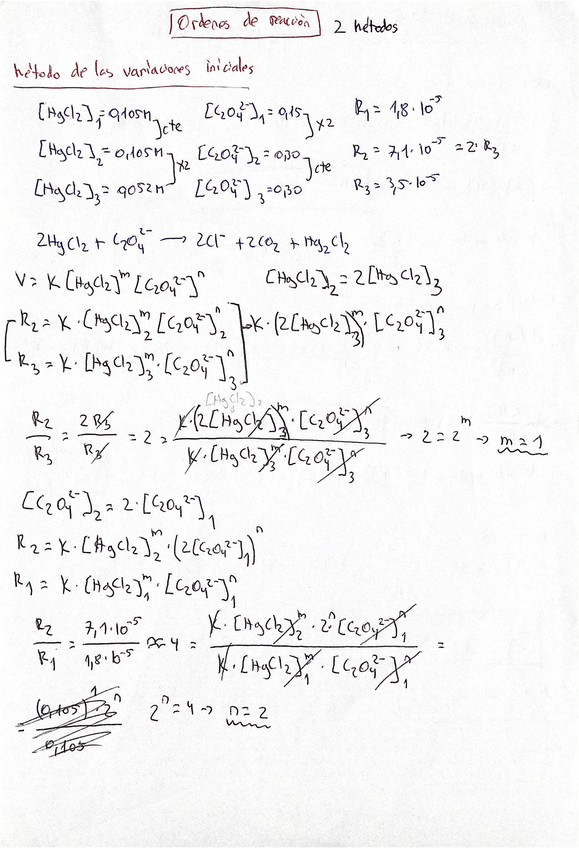 Ordenes de reacción 2 métodos
método de las variaciones iniciales
[HgCl2]1 = 0,105M ]cte [C2O4²⁻]1 = 0,15 ]x2 R1 = 1,8·10⁻⁵
[HgCl2]2 = 0,105M ]x2 [C2O4²⁻]2 = 0,30 ]cte R2 = 7,1·10⁻⁵ = 2·R3
[HgCl2]3 = 0,052M [C2O4²⁻]3 = 0,30 R3 = 3,5·10⁻⁵
2HgCl2 + C2O4²⁻ → 2Cl⁻ + 2CO2 + Hg2Cl2
V = K [HgCl2]ᵐ [C2O4²⁻]ⁿ [HgCl2]2 = 2[HgCl2]3
R2 = K·[HgCl2]2ᵐ [C2O4²⁻]2ⁿ → K·(2[HgCl2]3)ᵐ·[C2O4²⁻]3ⁿ
R3 = K·[HgCl2]3ᵐ·[C2O4²⁻]3ⁿ
[HgCl2]2
R2/R3 = 2R3/R3 = 2 = K·(2[HgCl2]3)ᵐ·[C2O4²⁻]3ⁿ / K·[HgCl2]3ᵐ·[C2O4²⁻]3ⁿ → 2 = 2ᵐ → m = 1
[C2O4²⁻]2 = 2·[C2O4²⁻]1
R2 = K·[HgCl2]2ᵐ·(2[C2O4²⁻]1)ⁿ
R1 = K·[HgCl2]1ᵐ·[C2O4²⁻]1ⁿ
R2/R1 = 7,1·10⁻⁵/1,8·10⁻⁵ ≈ 4 = K·[HgCl2]2ᵐ·2ⁿ·[C2O4²⁻]1ⁿ / K·[HgCl2]1ᵐ·[C2O4²⁻]1ⁿ =
= (0,105)¹·2ⁿ / 0,105 2ⁿ = 4 → n = 2